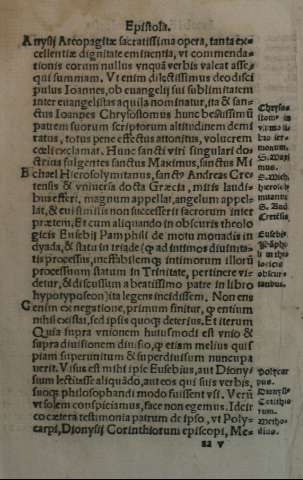 Epistola.
Anysij Areopagitæ sacratissima opera, tanta ex-
cellentiæ dignitate eminentia, vt commenda-
tionis eorum nullus vnquā verbis valeat asse-
qui summam. Vt enim dilectissimus deo disci
pulus Ioannes, ob euangelij sui sublimitatem
inter euangelistas aquila nominatur, ita & san-
ctus Ioannes Chrysostomus hunc beatissimū
patrem suorum scriptorum altitudinem demi
ratus, totus pene effectus attonitus, volucrem
cœli exclamat. Hunc sancti viri singulari do-
ctrina fulgentes sanctus Maximus, sanctus Mi
chael Hierosolymitanus, sanctꝰ Andreas Cre-
tensis & vniuersa docta Græcia, miris laudi-
bus efferri, magnum appellat, angelum appel-
lat, & cui similis non successerit sacrorum inter
præt em. Et cum aliquando in obscuris theolo
gicis Eusebij Pamphili de motu monadis in
dyada, & statu in triade (ꝙ ad intimos diuinita-
tis processus, ineffabilemqꝫ intimorum illorū
processuum statum in Trinitate, pertinere vi-
detur, & discussum a beatissimo patre in libro
hypotyposeon) ita legens incidissem. Non ens
enim ex negatione, primum finitur, ꝙ entium
nihil existat, sed ipsis quoqꝫ deterius. Et iterum
Quia supra vnionem huiusmodi est vnio &
supra diuisionem diuisio, ꝙ etiam melius quis
piam superunitum & superdiuisum nuncupa
uerit. Visus est mihi ipse Eusebius, aut Dionysi
sium lectitasse aliquādo, aut eos qui suis verbis,
suoqꝫ philosophandi modo fuissent vsi. Verū
vt solem conspiciamus, face non egemus. Idcir
co cætera testimonia patrum de ipso, vt Poly-
carpi, Dionysij Corinthiorum episcopi, Me-
Chryso-
stomꝰ in
sermonum.
S. Maxi
mus.
S. Mich.
hierosoly
mitanus
S. And.
Cretēsis.
Eusebiꝰ
Pāphi-
obscur-
Polycar
pus.
Dionysiꝰ
Corinthio
rum.
Metho-
dius.
a v